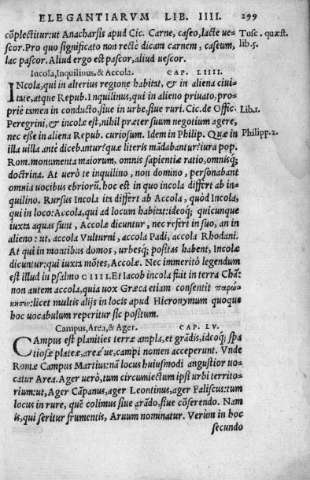 ELEGANTIARVM LIB. IIII. 299
cõplectitur:ut Anacharsis apud Cic. Carne, caseo, lacte ue=
scor. Pro quo significato non rectè dicam carnem, caseum,
lac pascor. Aliud ergo est pascor, aliud uescor.
Tusc. quæst.
lib. 5.
Incola, Inquilinus, & Accola. CAP. LIIII.
INcola, qui in alterius regione habitat, & in aliena ciui=
tate, atque Repub. Inquilinus, qui in alieno priuato, pro=
priè tamen in conducto, siue in urbe, siue ruri. Cic. de Offic.
Peregrini, & incolæ est, nihil præter suum negotium agere,
nec esse in aliena Repub. curiosum. Idem in Philip. Quæ in
illa uilla antè dicebantur? quæ literis mãdabantur? iura pop.
Rom. monumenta maiorum, omnis sapientiæ ratio, omnisq;
doctrina. At uerò te inquilino, non domino, personabant
omnia uocibus ebriorũ, hoc est in quo incola differt ab in=
quilino. Rursus Incola ita differt ab Accola, quòd Incola,
qui in loco: Accola, qui ad locum habitat: ideoq; quicunque
iuxta aquas sunt, Accolæ dicuntur, nec refert in suo, an in
alieno: ut, accola Vulturni, accola Padi, accola Rhodani.
At qui in montibus domos, urbesq; positas habent, Incolæ
dicuntur: qui iuxta mõtes, Accolæ. Nec immeritò legendum
est illud in psalmo CIIII. Et Iacob incola fuit in terra Chã:
non autem accola, quia uox Græca etiam consentit παρώ-
κησεν: licet multis alijs in locis apud Hieronymum quoque
hoc uocabulum reperitur sic positum.
Lib. 1.
Philipp. 2.
Campus, Area, & Ager. CAP. LV.
CAmpus est planities terræ ampla, et grãdis, ideoq; spa
tiosæ plateæ, areæue, campi nomen acceperunt. Vnde
Romæ Campus Martius: nã locus huiusmodi angustior uo=
catur Area. Ager uerò, tum circumiectum ipsi urbi territo=
rium: ut, Ager Cãpanus, ager Leontinus, ager Faliscus: tum
locus in rure, què colimus siue arãdo, siue cõserendo. Nam
is, qui seritur frumentis, Aruum nominatur. Verùm in hoc
secundo